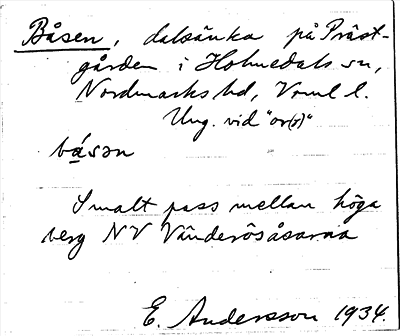 Båsen, dalsänka på Präst-
gården i Holmedals sn,
Nordmarks hd, Vrml l.
Ung. vid "or(p)"
bǻsən
Smalt pass mellan höga
berg NV Vänderösåsarna
E. Andersson 1934.